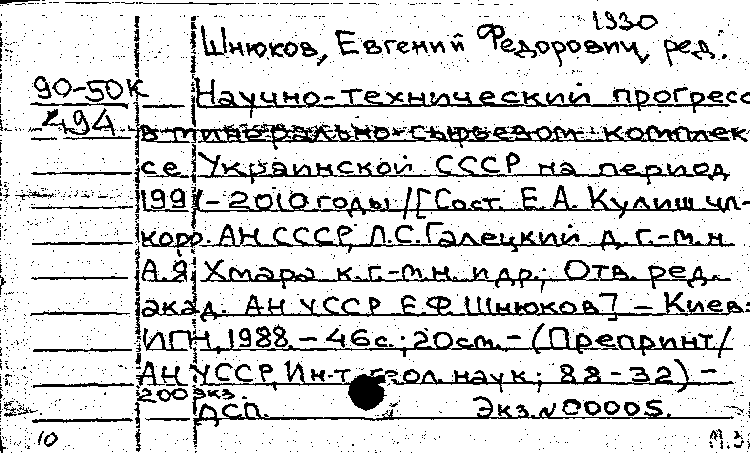 1930
Шнюков, Евгений Федорович, ред.
90-50К
494
Научно-технический прогресс
в минерально-сырьевом комплек
се Украинской СССР на период
1991-2010 годы /[Сост. Е.А. Кулиш чл-
корр. АН СССР, Л.С. Галецкий д.г.-м.н
А.Я. Хмара к.г.-м.н. и др.; Отв. ред.
акад. АН УССР Е.Ф. Шнюков] - Киев:
ИГН, 1988. - 46с.; 20см. - (Препринт/
АН УССР, Ин-т геол. наук; 88-32) -
200 экз.
ДСП. Экз. N 00005.
10